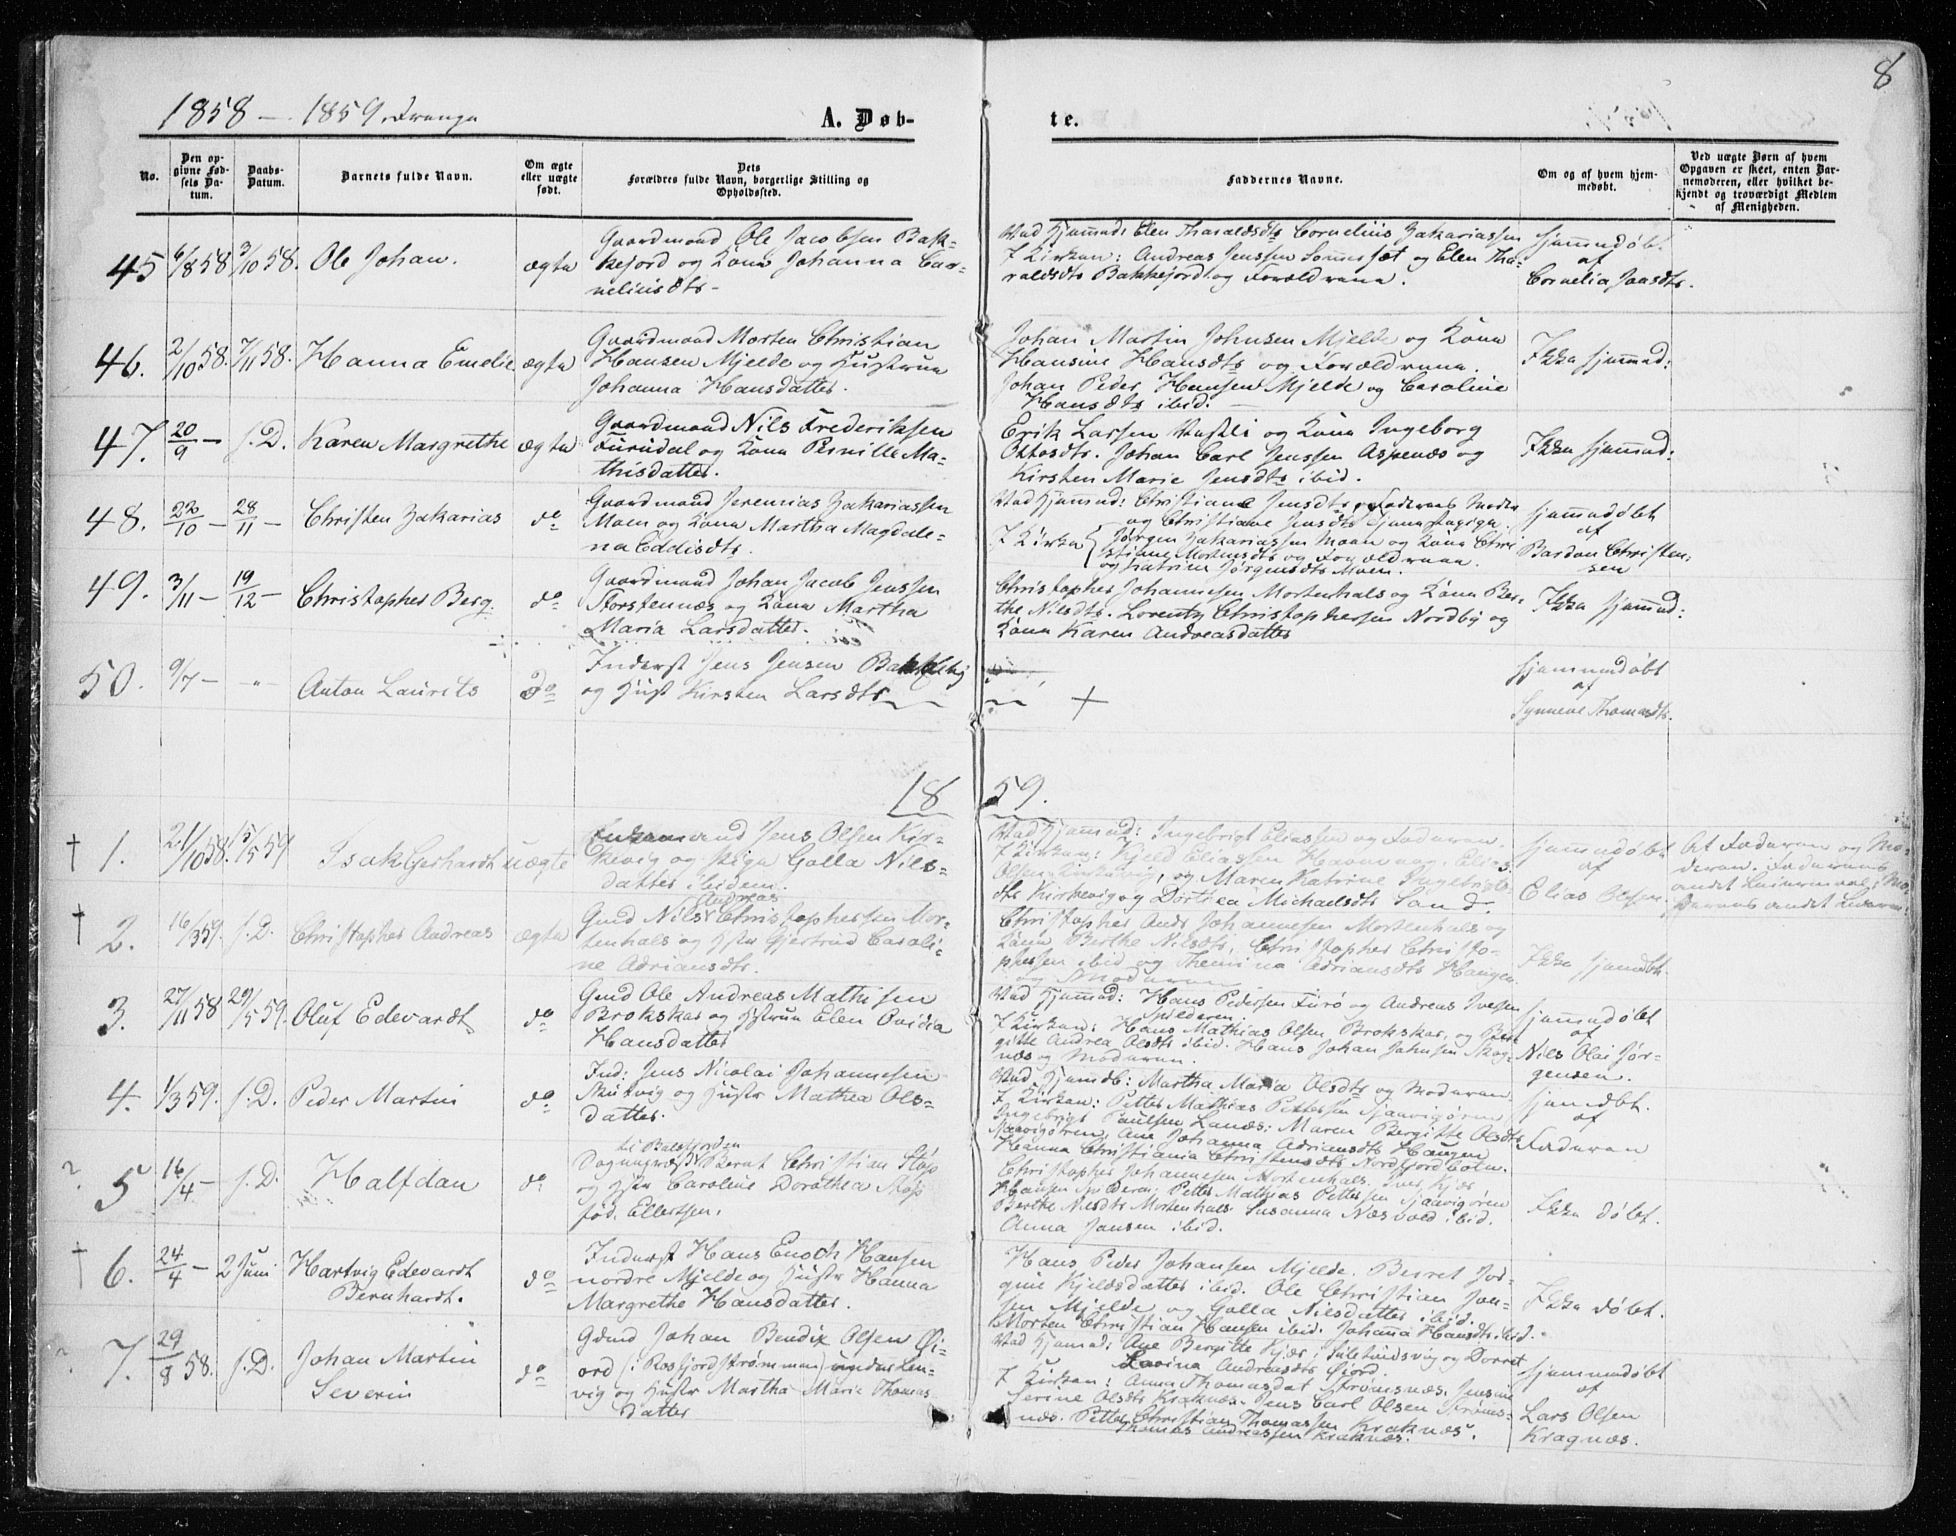 8
1858 — 1859. Drenge
A. Døb-
te.
No.
Den op-
givne Fød-
sels Da-
tum.
Daabs-
Datum.
Barnets fulde Navn.
Om ægte
eller uægte
født.
Dets
Forældres fulde Navn, borgerlige Stilling og
Opholdssted.
Faddernes Navne.
Om og af hvem hjem-
medøbt.
Ved uægte Børn af hvem
Opgaven er skeet, enten Bar-
nemoderen, eller hvilket be-
kjendt og troværdigt Medlem
af Menigheden.
45 6/8 58 3/10 58. Ole Johan. ægte
Gaardmand Ole Jacobsen Bak-
kejord og Kone Johanna Cor-
neliusdtr.
Ved Hjemmed: Elen Tharaldsdtr Cornelius Zakariassen
I Kirken: Andreas Jenssen Sommersæt og Elen Tha-
raldsdtr Bakkejord og Forældrene.
hjemmedøbt
af
Cornelia Jonsdtr.
46. 2/10 58. 7/11 58. Hanna Emelie ægte
Gaardmand Morten Christian
Hansen Mjelde og Hustrue
Johanna Hansdatter.
Johan Martin Johnsen Mjelde og Kone
Hansine Hansdtr og Forældrene.
Johan Peder Hansen Mjelde og Caroline
Hansdtr ibid.
Ikke hjemmed:
47. 20/9 — s. D. Karen Margrethe ægte
Gaardmand Nils Frederiksen
Furudal og Kone Pernille Ma-
thisdatter.
Erik Larsen Vasli og Kone Ingeborg
Ottosdtr. Johan Carl Jenssen Aspenæs og
Kirsten Marie Jensdtr ibid.
Ikke hjemmed:
48. 22/10 — 28/11 — Christen Zakarias do
Gaardmand Jeremias Zakariassen
Moen og Kone Martha Magdale-
na Eddisdtr.
Ved Hjemmed: Christiane Jensdtr Faderens Moder
og Christiane Jensdtr Tjenestepige.
I Kirken Jørgen Zakariassen Moen og Kone Chri-
stiane Mortensdtr og Forældrene.
og Katrine Jørgensdtr Moen.
hjemmedøbt
af
Bardon Christen-
sen
49. 3/11 — 19/12 — Christopher Berg. do
Gaardmand Johan Jacob Jenssen
Storstennæs og Kone Martha
Maria Larsdatter.
Christopher Johannesen Mortenhals og Kone Ber-
the Nilsdtr. Lorentz Christophersen Nordby og
Kone Karen Andreasdatter
Ikke hjemmed:
50. 9/7 — " Anton Laurits do
Inderst Jens Jensen Bakkeby
og Hust Kirsten Larsdtr
+
hjemmedøbt
af
Synneve Thomasdtr.
18 59.
† 1. 21/10 58. 15/5 59 Isak Gerhardt uægte
Enkemand Jens Olsen Kir-
kevig og Pige Golla Nils-
datter ibidem.
Ved Hjemmed: Ingebrigt Eliassen og Faderen.
I Kirken: Kjeld Eliassen Elias
Olsen Kirkevig, og Maren Katrine Ingebrigts-
dtr Kirkevig og Dorthea Michaelsdtr Sand.
hjemmedøbt
af
Elias Olsen
At Faderen og Mo-
deren. Faderens
andet Leiermaal, Mo-
derens andet Leierm.
† 2. 16/3 59. s. D. Christopher Andreas ægte
Andreas
Gmd Nils Christophersen Mor-
tenhals og Hstr Gjertrud Caroli-
ne Adriansdtr.
Christopher Andr Johannesen Mortenhals og
Kone Berthe Nilsdtr, Christopher Christo-
phersen ibid og Themina Adriansdtr Haugen
og Moderen
Ikke hjemdbt.
3. 27/11 58 29/5 59. Oluf Edevardt do
Gmd Ole Andreas Mathisen
Brokskar og Hstrue Elen Ovidia
Hansdatter
Ved Hjemmed: Hans Pedersen Furø og Andreas Iversen
Spilderen.
I Kirken: Hans Mathias Olsen Brokskar, og Ber-
gitte Andrea Olsdtr ibid. Hans Johan Johnsen Skog-
næs og Moderen.
hjemmedøbt
af
Nils Olai Jør-
gensen.
4. 1/3 59. s. D. Peder Martin do
Ind: Jens Nicolai Johannesen
og Hustr Mathea Ols-
datter.
Ved Hjemdb: Martha Maria Olsdtr og Moderen
I Kirken: Petter Mathias Pettersen Sjaavigøren
Ingebrigt Paulsen Lanæs: Maren Bergitte Olsdtr
Sjaavigøren, Ane Johanna Adriansdtr Haugen
Hanna Christiania Christensdtr Nordfjordbotn.
hjemdbt.
af
Faderen
? 5 16/4 — s. D. Halfdan do
i Balsfjorden
Sogneprest Bernt Christian Støp
og Hstr Caroline Dorothea Støp
fød. Ellertsen.
Christopher Johannesen Mortenhals. Iver Kjær
Hansen Spilderen, Petter Mathias Pettersen Sjaavigøren
Berthe Nilsdtr Mortenhals. Susanna Næsvold ibid.
Anna Jansen ibid.
Ikke døbt.
† 6. 24/4 — 2 Juni Hartvig Edevardt
Bernhardt. do
Inderst Hans Enoch Hansen
nordre Mjelde og Hustr Hanna
Margrethe Hansdatter.
Hans Peder Johansen Mjelde. Berret Jor-
gine Kjeldsdatter ibid. Ole Christian Jon-
sen Mjelde og Golla Nilsdatter ibid.
Morten Christian Hansen ibid. Johanna Hansdtr ibid.
Ikke døbt.
? 7. 29/8 58. s. D. Johan Martin
Severin do
Gmd Johan Bendix Olsen Øi-
ord (: Rosfjordstrømmen) under Len-
vig og Hustr Martha Marie Thomas-
datter
Ved Hjemmd: Ane Bergitte Kjær, Sultindvig og Dorret
Lovina Andreasdtr Øiord.
I Kirken: Anna Thomasdat Strømsnæs. Jensine
Serine Olsdtr Kraknæs. Jens Carl Olsen Strøms-
næs. Petter Christian Thomassen Kraknæs.
Thomas Andreassen Kraknæs.
hjemmedøbt
af
Lars Olsen
Kragnæs.